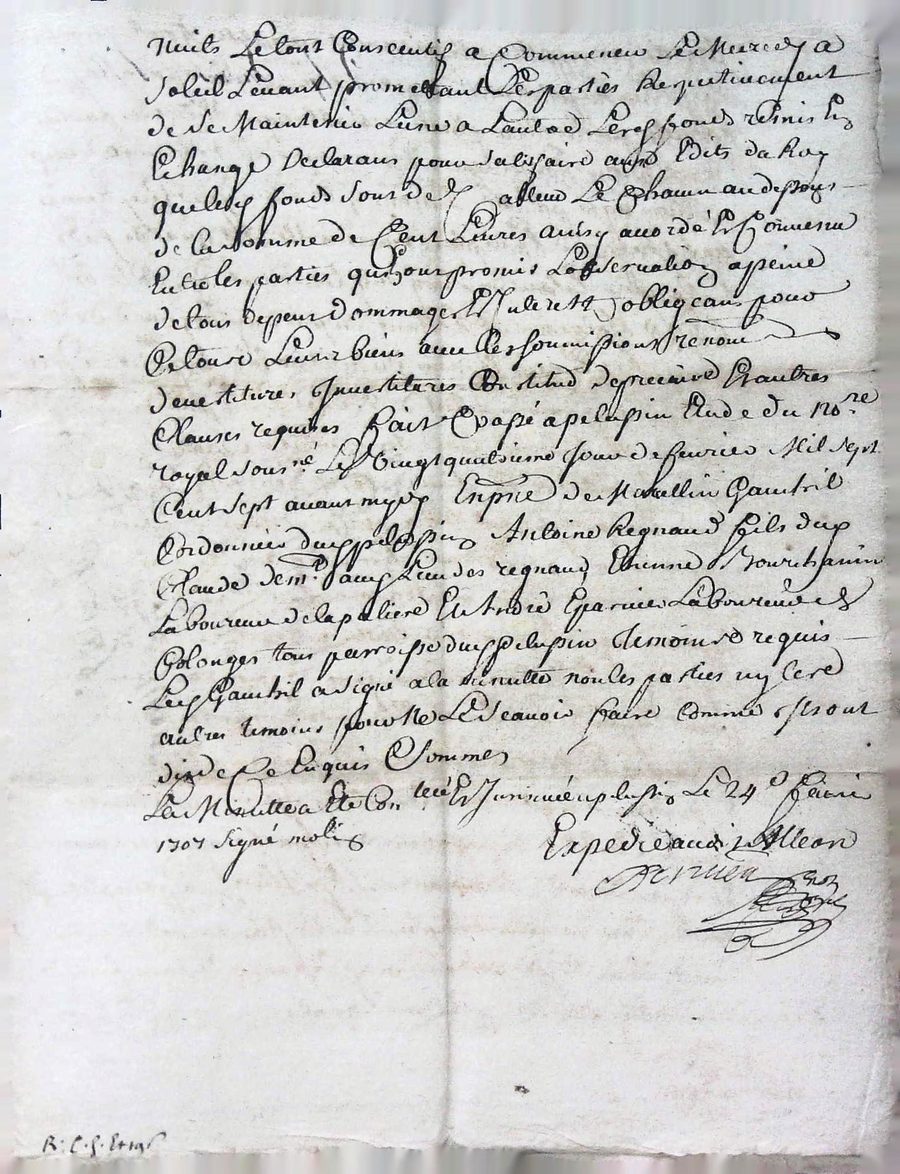 nuits Le tout Consecutif a Commencer Le Mercredy a
Soleil Levant promettant Les parties Respectivement
de Se Maintenir Lune a Lautre Les fonds remis En
Echange Declarans pour Satisfaire aux Edits du Roy
que Les fonds Sont de Valleur Le Chacun au dessous
de la Somme de Cent Livres ainsy accordé Et Convenu
Entre les parties qui ont promis Lobservation a peine
de tous depens dommages Et obligeans pour
Ce tous Leurs biens avec Les Soumissions renom
devestitures Investitures Constitud de precaire Et autres
Clauses requises fait Et passé a pelussin Etude du nore
royal Sousné Le Vingt quatrieme Jour de fevrier Mil Sept
Cent Sept avant midy En pnce de Matellin Gauthil
Cordonnier dud pelussin Antoine Regnaud fils du
Claude demt au Lieu des regnaud Etienne Bourchanin
Laboureur de la paliere Et André Eparvier Laboureur de
Colonges tous parroisse dud pelussin temoins requis
Led Gauthil a Signé a la minutte non les parties ny les
autres temoins pour ne Le Scavoir faire Comme Ils ont
dit de Ce Enquis Sommes
La Minutte a Eté Conlée Et Insinuée a pelussin Le 24e fevrier
1707 Signé
Expedié aud Sr Alleon